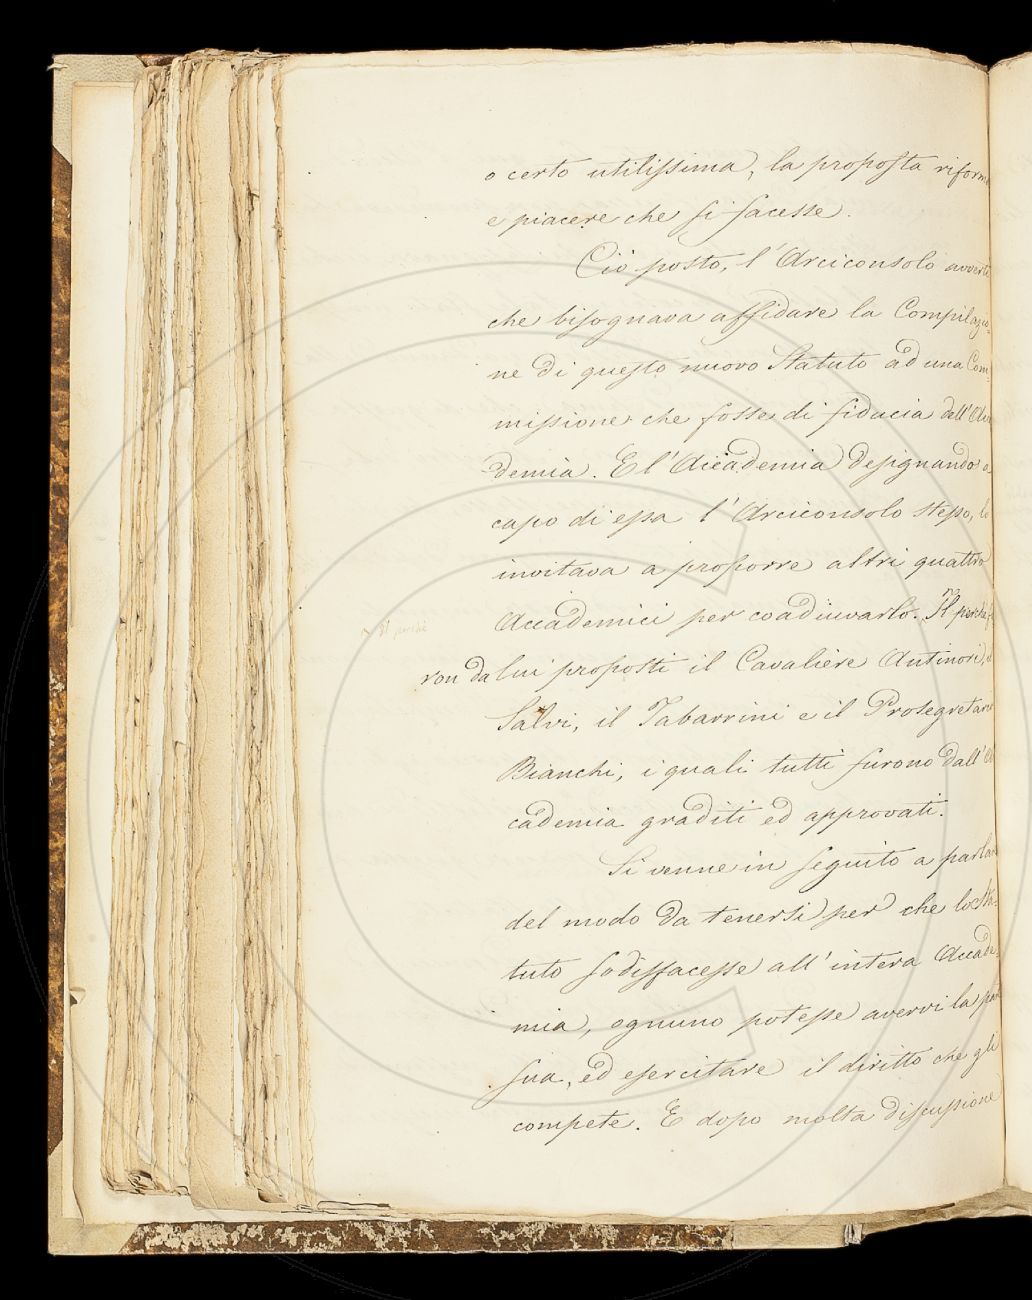 o certo utilissima, la proposta riforma
e piacere che si facesse.
Ciò posto, l'Arciconsolo avvertì
che bisognava affidare la Compilazio-
ne di questo nuovo Statuto ad una Com-
missione che fosse di fiducia dell'Acca
demia. E l'Accademia designando a
capo di essa l'Arciconsolo stesso, lo
invitava a proporre altri quattro
Accademici per coadiuvarlo. Il perchè fu
ron da lui proposti il Cavaliere Antinori, il
Salvi, il Tabarrini e il Prosegretario
Bianchi, i quali tutti furono dall'Ac
cademia graditi ed approvati.
Si venne in seguito a parlare
del modo da tenersi per che lo Sta-
tuto sodisfacesse all'intera Accade-
mia, ognuno potesse avervi la parte
sua, ed esercitare il diritto che gli
compete. E dopo molta discussione
Il perchè